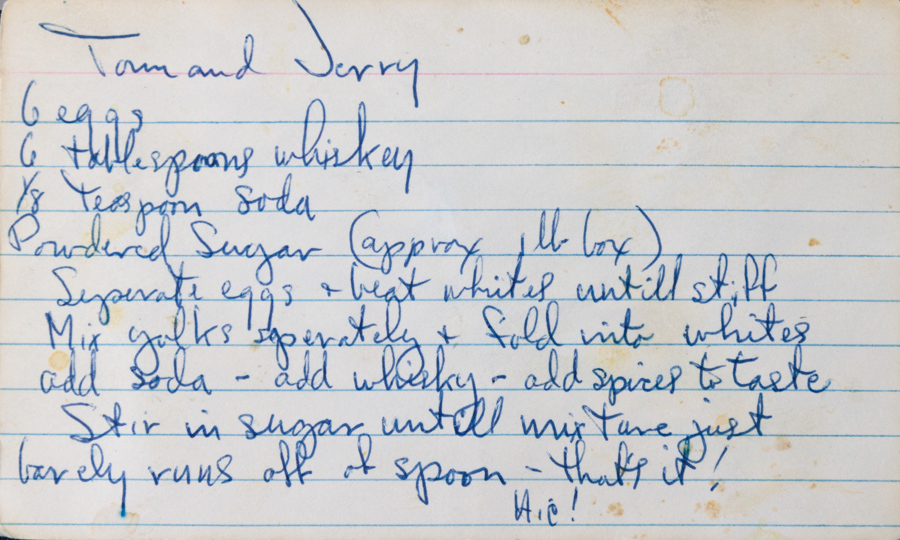 Tom and Jerry
6 eggs
6 tablespoons whiskey
1/8 Teaspoon Soda
Powdered Sugar (approx 1 lb box)
Seperate eggs + beat whites untill stiff
Mix yolks seperately + fold into whites
add soda - add whisky - add spices to taste
Stir in sugar untill mixture just
barely runs off of spoon - that's it!
Hic!